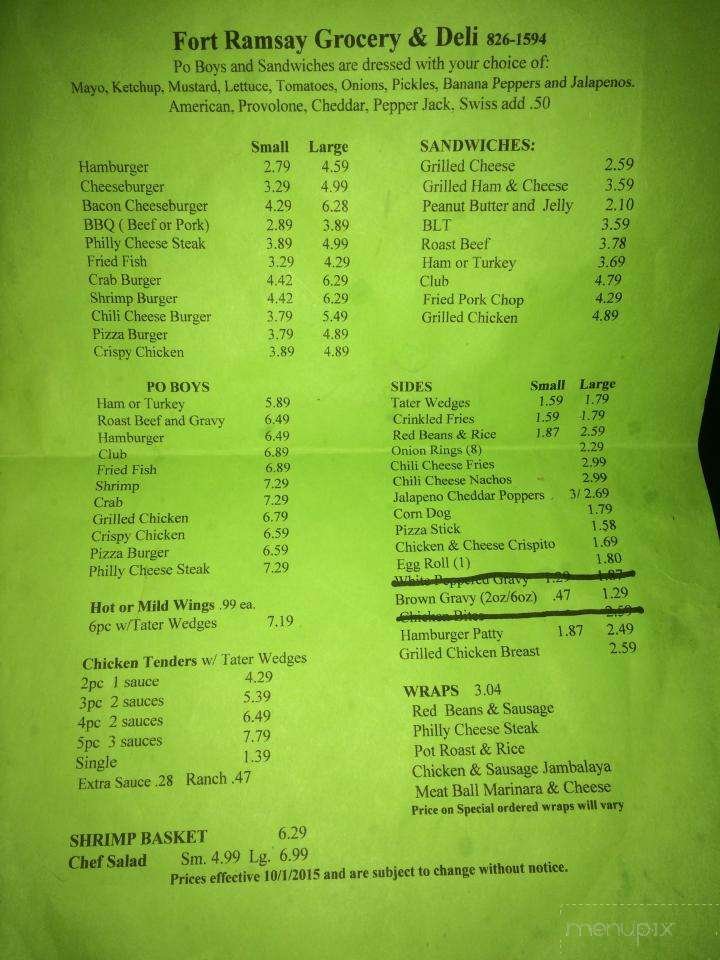 Fort Ramsay Grocery & Deli 826-1594
Po Boys and Sandwiches are dressed with your choice of:
Mayo, Ketchup, Mustard, Lettuce, Tomatoes, Onions, Pickles, Banana Peppers and Jalapenos.
American, Provolone, Cheddar, Pepper Jack, Swiss add .50
Small Large
Hamburger 2.79 4.59
Cheeseburger 3.29 4.99
Bacon Cheeseburger 4.29 6.28
BBQ ( Beef or Pork) 2.89 3.89
Philly Cheese Steak 3.89 4.99
Fried Fish 3.29 4.29
Crab Burger 4.42 6.29
Shrimp Burger 4.42 6.29
Chili Cheese Burger 3.79 5.49
Pizza Burger 3.79 4.89
Crispy Chicken 3.89 4.89
SANDWICHES:
Grilled Cheese 2.59
Grilled Ham & Cheese 3.59
Peanut Butter and Jelly 2.10
BLT 3.59
Roast Beef 3.78
Ham or Turkey 3.69
Club 4.79
Fried Pork Chop 4.29
Grilled Chicken 4.89
PO BOYS
Ham or Turkey 5.89
Roast Beef and Gravy 6.49
Hamburger 6.49
Club 6.89
Fried Fish 6.89
Shrimp 7.29
Crab 7.29
Grilled Chicken 6.79
Crispy Chicken 6.59
Pizza Burger 6.59
Philly Cheese Steak 7.29
Hot or Mild Wings .99 ea.
6pc w/Tater Wedges 7.19
Chicken Tenders w/ Tater Wedges
2pc 1 sauce 4.29
3pc 2 sauces 5.39
4pc 2 sauces 6.49
5pc 3 sauces 7.79
Single 1.39
Extra Sauce .28 Ranch .47
SHRIMP BASKET 6.29
Chef Salad Sm. 4.99 Lg. 6.99
SIDES Small Large
Tater Wedges 1.59 1.79
Crinkled Fries 1.59 1.79
Red Beans & Rice 1.87 2.59
Onion Rings (8) 2.29
Chili Cheese Fries 2.99
Chili Cheese Nachos 2.99
Jalapeno Cheddar Poppers . 3/ 2.69
Corn Dog 1.79
Pizza Stick 1.58
Chicken & Cheese Crispito 1.69
Egg Roll (1) 1.80
White Peppered Gravy 1.29 1.87
Brown Gravy (2oz/6oz) .47 1.29
Chicken Bites 2.59
Hamburger Patty 1.87 2.49
Grilled Chicken Breast 2.59
WRAPS 3.04
Red Beans & Sausage
Philly Cheese Steak
Pot Roast & Rice
Chicken & Sausage Jambalaya
Meat Ball Marinara & Cheese
Price on Special ordered wraps will vary
Prices effective 10/1/2015 and are subject to change without notice.
menupix